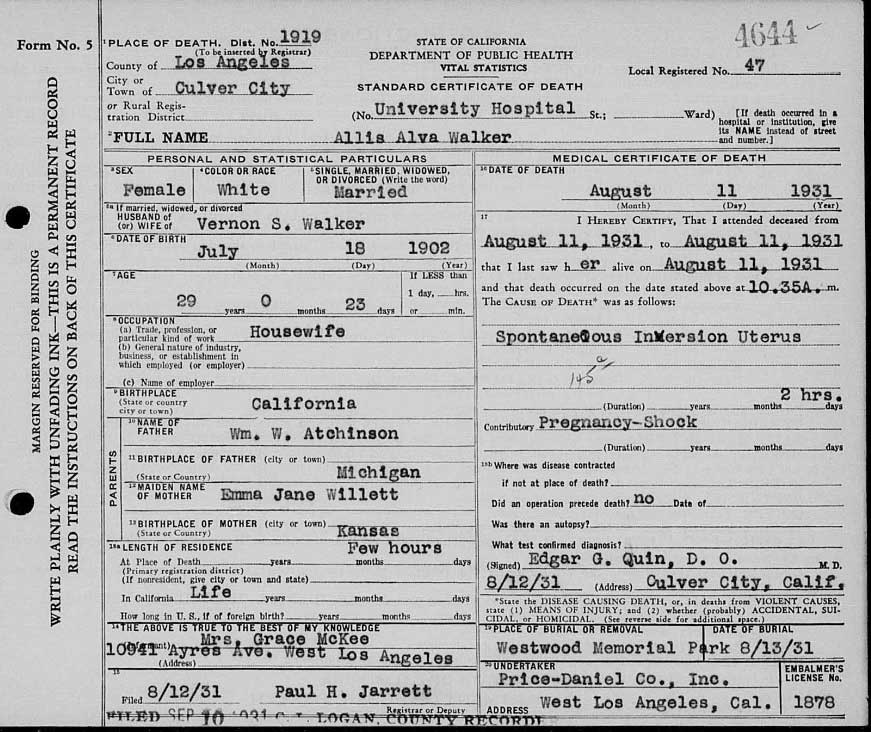 4644
Form No. 5
MARGIN RESERVED FOR BINDING
WRITE PLAINLY WITH UNFADING INK—THIS IS A PERMANENT RECORD
READ THE INSTRUCTIONS ON BACK OF THIS CERTIFICATE
1 PLACE OF DEATH. Dist. No. 1919
(To be inserted by Registrar)
County of Los Angeles
City or
Town of Culver City
or Rural Regis-
tration District
STATE OF CALIFORNIA
DEPARTMENT OF PUBLIC HEALTH
VITAL STATISTICS
STANDARD CERTIFICATE OF DEATH
Local Registered No. 47
(No. University Hospital St.; Ward)
[If death occurred in a
hospital or institution, give
its NAME instead of street
and number.]
2 FULL NAME Allis Alva Walker
PERSONAL AND STATISTICAL PARTICULARS
3 SEX
Female
4 COLOR OR RACE
White
5 SINGLE, MARRIED, WIDOWED,
OR DIVORCED (Write the word)
Married
5a If married, widowed, or divorced
HUSBAND of
(or) WIFE of Vernon S. Walker
6 DATE OF BIRTH
July 18 1902
(Month) (Day) (Year)
7 AGE
29 years 0 months 23 days
If LESS than
1 day, hrs.
or min.
8 OCCUPATION
(a) Trade, profession, or
particular kind of work Housewife
(b) General nature of industry,
business, or establishment in
which employed (or employer)
(c) Name of employer
9 BIRTHPLACE
(State or country
city or town) California
PARENTS
10 NAME OF
FATHER Wm. W. Atchinson
11 BIRTHPLACE OF FATHER (city or town)
(State or Country) Michigan
12 MAIDEN NAME
OF MOTHER Emma Jane Willett
13 BIRTHPLACE OF MOTHER (city or town)
(State or Country) Kansas
13a LENGTH OF RESIDENCE Few hours
At Place of Death years months days
(Primary registration district)
(If nonresident, give city or town and state)
In California Life years months days
How long in U. S., if of foreign birth? years months days
14 THE ABOVE IS TRUE TO THE BEST OF MY KNOWLEDGE
Mrs. Grace McKee
10941 Ayres Ave. West Los Angeles
(Address)
15
Filed 8/12/31 Paul H. Jarrett
Registrar or Deputy
FILED SEP 10 1931 C. L. LOGAN, COUNTY RECORDER
MEDICAL CERTIFICATE OF DEATH
16 DATE OF DEATH
August 11 1931
(Month) (Day) (Year)
17
I HEREBY CERTIFY, That I attended deceased from
August 11, 1931, to August 11, 1931
that I last saw her alive on August 11, 1931
and that death occurred on the date stated above at 10.35A. m.
The CAUSE OF DEATH* was as follows:
Spontaneous Inversion Uterus
145 a
2 hrs.
(Duration) years months days
Contributory Pregnancy-Shock
(Duration) years months days
18b Where was disease contracted
if not at place of death?
Did an operation precede death? no Date of
Was there an autopsy?
What test confirmed diagnosis?
(Signed) Edgar G. Quin, D. O. M. D.
8/12/31 (Address) Culver City, Calif.
*State the DISEASE CAUSING DEATH, or, in deaths from VIOLENT CAUSES,
state (1) MEANS OF INJURY; and (2) whether (probably) ACCIDENTAL, SUI-
CIDAL, or HOMICIDAL. (See reverse side for additional space.)
19 PLACE OF BURIAL OR REMOVAL
Westwood Memorial Park
DATE OF BURIAL
8/13/31
20 UNDERTAKER
Price-Daniel Co., Inc.
ADDRESS West Los Angeles, Cal.
EMBALMER'S
LICENSE No.
1878